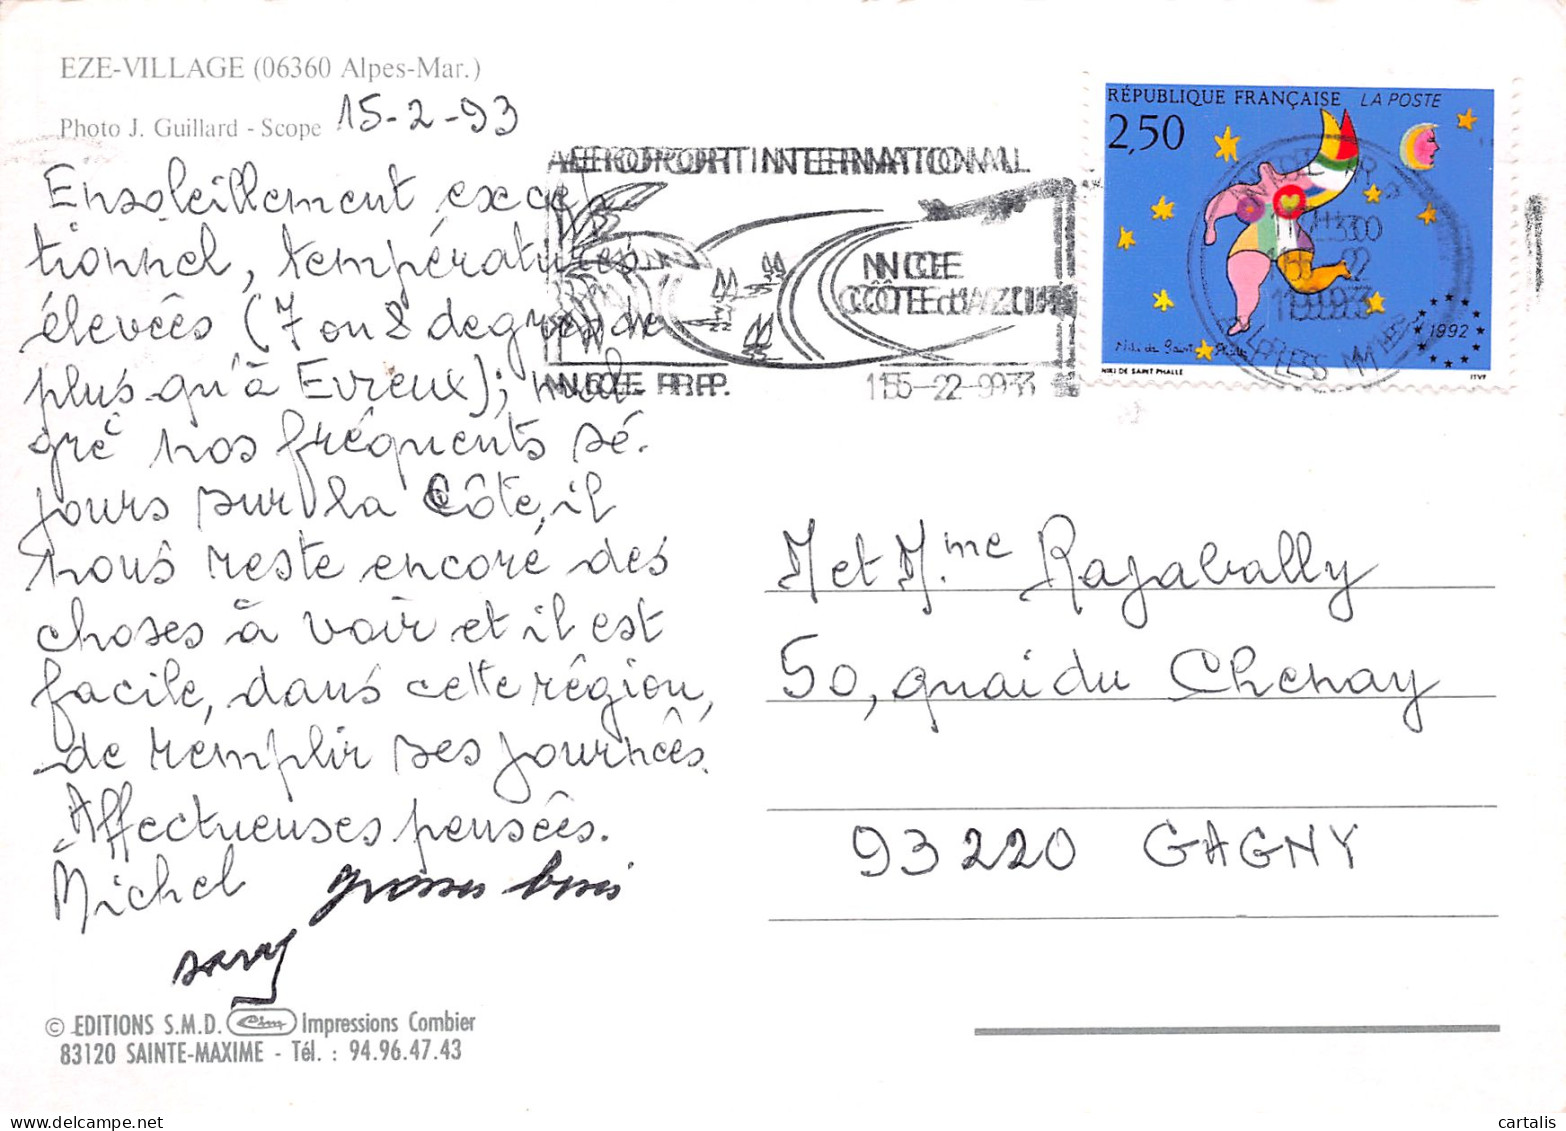 EZE-VILLAGE (06360 Alpes-Mar.)
Photo J. Guillard - Scope
15-2-93
Ensoleillement excep
tionnel, températures
élevées (7 ou 8 degrés de
plus qu'à Evreux); mal
gré nos fréquents sé-
jours sur la Côte, il
nous reste encore des
choses à voir et il est
facile, dans cette région,
de remplir ses journées.
Affectueuses pensées.
Michel
grosses bises
RÉPUBLIQUE FRANÇAISE LA POSTE
2,50
1992
Niki de Saint Phalle
NIKI DE SAINT PHALLE
ITVF
AEROPORT INTERNATIONAL
NICE
CÔTE D'AZUR
NICE R.P.
15-2-93
M et M.me Rajabally
50, quai du Chenay
93220 GAGNY
© EDITIONS S.M.D. Cim Impressions Combier
83120 SAINTE-MAXIME - Tél. : 94.96.47.43
cartalis